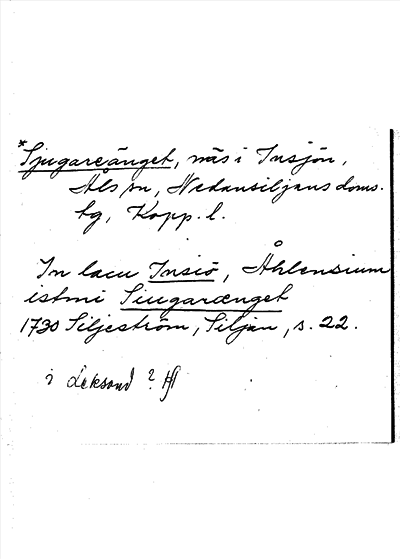 *Sjugareänget, näs i Insjön,
Åls sn, Nedansiljans doms.
tg, Kopp. l.
In lacu Insiö, Åhlensium
istmi Siugarænget
1730 Siljeström, Siljan, s. 22.
i Leksand?